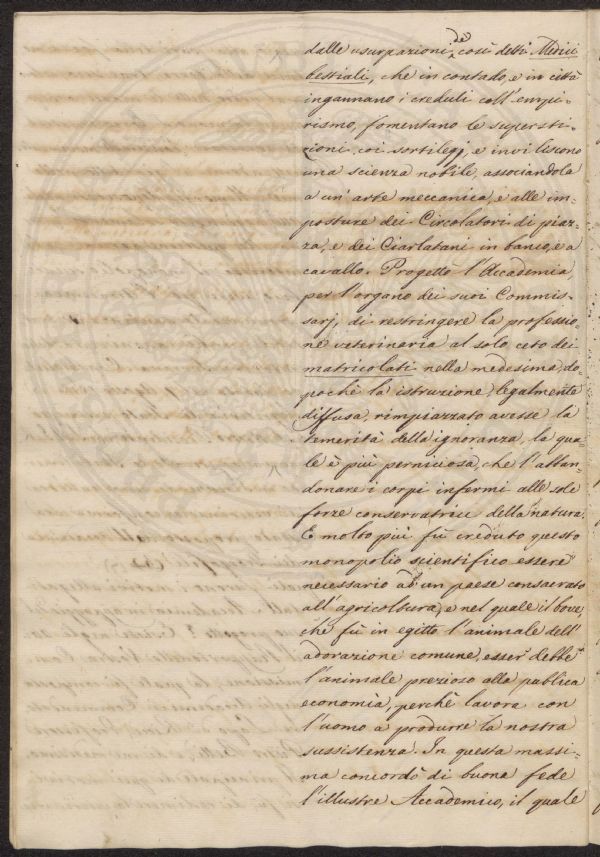 dalle usurpazioni de così detti Medici
bestiali, che in contado, e in città
ingannano i creduli coll'empi-
rismo, fomentano le supersti-
zioni coi sortilegj, e inviliscono
una scienza nobile, associandola
a un'arte meccanica, e alle im-
posture dei Circolatori di piaz-
za, e dei Ciarlatani in banco, e a
cavallo. Progettò l'Accademia
per l'organo dei suoi Commis-
sarj, di restringere la professio-
ne veterinaria al solo ceto dei
matricolati nella medesima, do-
pochè la istruzione, legalmente
diffusa, rimpiazzato avesse la
temerità della ignoranza, la qua-
le è più perniciosa, che l'abban-
donare i corpi infermi alle sole
forze conservatrici della natura.
E molto più fù creduto questo
monopolio scientifico essere
necessario ad un paese consacrato
all'agricoltura, e nel quale il bove,
che fù in egitto l'animale dell'
adorazione comune, esser debbe
l'animale prezioso alla publica
economìa, perchè lavora con
l'uomo a produrre la nostra
sussistenza. In questa massi-
ma concordò di buona fede
l'illustre Accademico, il quale